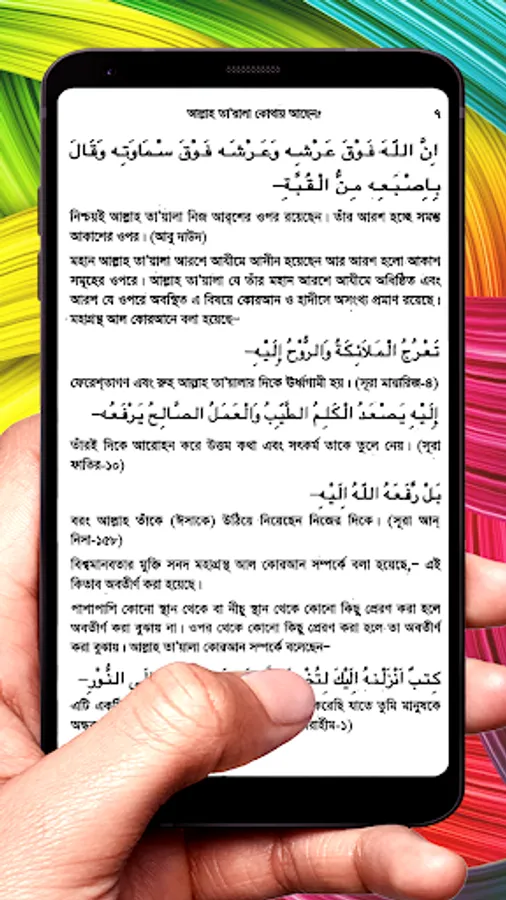 আল্লাহ তা'য়ালা কোথায় আছেন? ৭
اِنَّ اللّٰهَ فَوْقَ عَرْشِهِ وَعَرْشَه فَوْقَ سَمَاوَتِه وَقَالَ
بِاِصْبَعِهِ مِنُّ الْقُبَّةِ-
নিশ্চয়ই আল্লাহ তা'য়ালা নিজ আরশের ওপর রয়েছেন। তাঁর আরশ হচ্ছে সমস্ত
আকাশের ওপর। (আবু দাউদ)
মহান আল্লাহ তা'য়ালা আরশে আযীমে আসীন হয়েছেন আর আরশ হলো আকাশ
সমূহের ওপরে। আল্লাহ তা'য়ালা যে তাঁর মহান আরশে আযীমে অধিষ্ঠিত এবং
আরশ যে ওপরে অবস্থিত এ বিষয়ে কোরআন ও হাদীসে অসংখ্য প্রমাণ রয়েছে।
মহাগ্রন্থ আল কোরআনে বলা হয়েছে–
تَعْرُجُ الْمَلَائِكَةُ وَالرُّوْحُ اِلَيْهِ-
ফেরেশ্‌তাগণ এবং রুহু আল্লাহ তা'য়ালার দিকে উর্ধ্বগামী হয়। (সূরা মায়ারিজ-৪)
اِلَيْهِ يَصْعَدُ الْكَلِمُ الطَّيِّبُ وَالْعَمَلُ الصَّالِحُ يَرْفَعُه-
তাঁরই দিকে আরোহন করে উত্তম কথা এবং সৎকর্ম তাকে তুলে নেয়। (সূরা
ফাতির-১০)
بَلْ رَّفَعَهُ اللّٰهُ اِلَيْهِ-
বরং আল্লাহ তাঁকে (ঈসাকে) উঠিয়ে নিয়েছেন নিজের দিকে। (সূরা আন্
নিসা-১৫৮)
বিশ্বমানবতার মুক্তি সনদ মহাগ্রন্থ আল কোরআন সম্পর্কে বলা হয়েছে,– এই
কিতাব অবতীর্ণ করা হয়েছে।
পাপাপাসি কোনো স্থান থেকে বা নীচু স্থান থেকে কোনো কিছু প্রেরণ করা হলে
অবতীর্ণ করা বুঝায় না। ওপর থেকে কোনো কিছু প্রেরণ করা হলে তা অবতীর্ণ
করা বুঝায়। আল্লাহ তা'য়ালা কোরআন সম্পর্কে বলেছেন–
كِتٰبٌ اَنْزَلْنٰهُ اِلَيْكَ اِلَى النُّوْرِ-
এটি করেছি যাতে তুমি মানুষকে